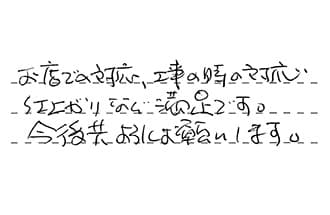 お店での対応、工事の時の対応い
仕上がりなど満足です。
今後共よろしくお願いします。